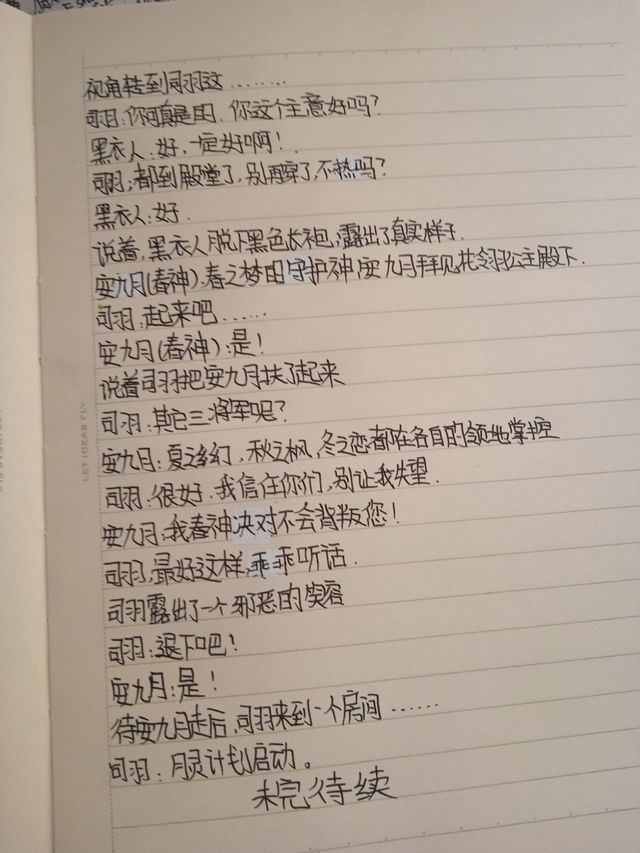 视角转到司羽这………
司羽:你可真是的、你这个主意好吗?
黑衣人:好,一定好啊!
司羽:都到殿堂了,别再穿了,不热吗?
黑衣人:好.
说着,黑衣人脱下黑色长袍,露出了真实样子.
安九月(春神):春之梦的守护神,安九月拜见花翎羽公主殿下.
司羽:起来吧……
安九月(春神):是!
说着司羽把安九月扶了起来
司羽:其它三将军呢?
安九月:夏之幻,秋之枫,冬之恋都在各自的领地掌控
司羽:很好.我信任你们,别让我失望.
安九月:我春神决对不会背叛您!
司羽:最好这样,乖乖听话.
司羽露出了一个邪恶的笑容
司羽:退下吧!
安九月:是!
待安九月走后,司羽来到一个房间……
司羽:月灵计划启动。
未完待续
LET IDEAS FLY